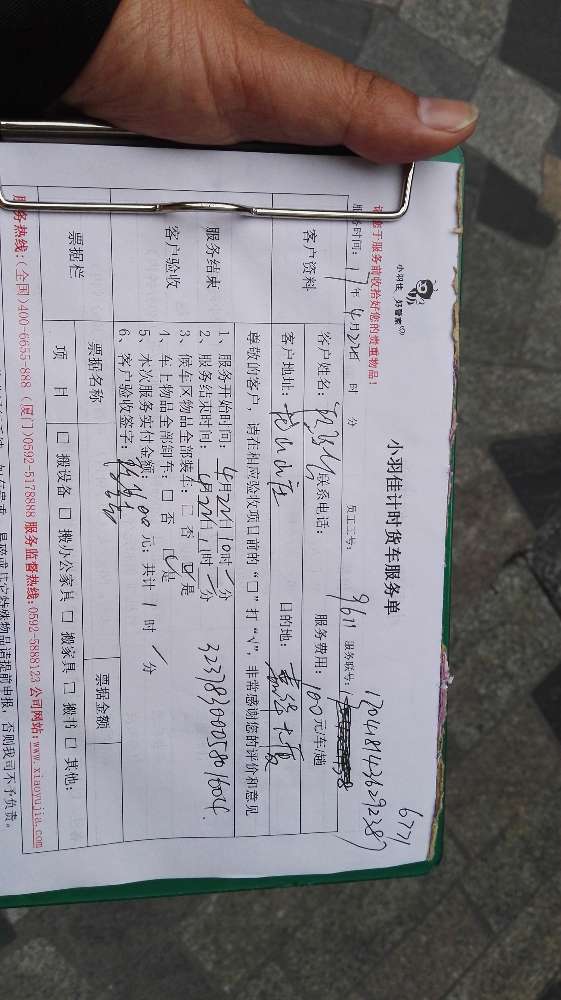 6771
小羽佳 好管家
小羽佳计时货车服务单
请您于服务前收拾好您的贵重物品!
服务时间: 17年 4月22日 时 分 员工工号: 9611 服务账号: 1704181436292387
客户资料
客户姓名: 联系电话: 服务费用: 100元/车/趟
客户地址: 目的地: 大厦
服务结束
客户验收
尊敬的客户, 请在相应验收项目前的“□”打“√”, 非常感谢您的评价和意见
1、服务开始时间: 4月22日10时/分
2、服务结束时间: 4月22日11时/分 3237830005801604.
3、候车区物品全部装车: □ 否 ☑是
4、车上物品全部卸车: □ 否 ☑是
5、本次服务实付金额: 100 元; 共计 1 时 / 分
6、客户验收签字:
票据栏
票据名称 票据金额
项 目 □ 搬设备 □ 搬办公家具 □ 搬家具 □ 搬书 □ 其他:
服务热线: (全国)400-6655-888 (厦门)0592-5178888 服务监督热线:0592-5888123 公司网站: www.xiaoyujia.com
易碎或其它特殊物品请提前申报, 否则我司不予负责。